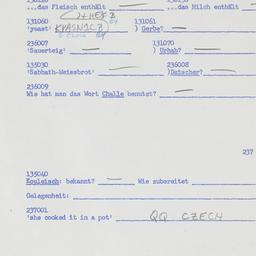 ...das Fleisch enthält ...das Milch enthält
131060 131061
'yeast' ) Gerbe?
236007 131070
'Sauerteig' ) Urhab?
135030 236008
'Sabbath-Weissbrot' ) Datscher?
236009
Wie hat man das Wort Challe benutzt?
237
135040
Kouleisch: bekannt? Wie zubereitet
Gelegenheit:
237001
'she cooked it in a pot' QQ CZECH